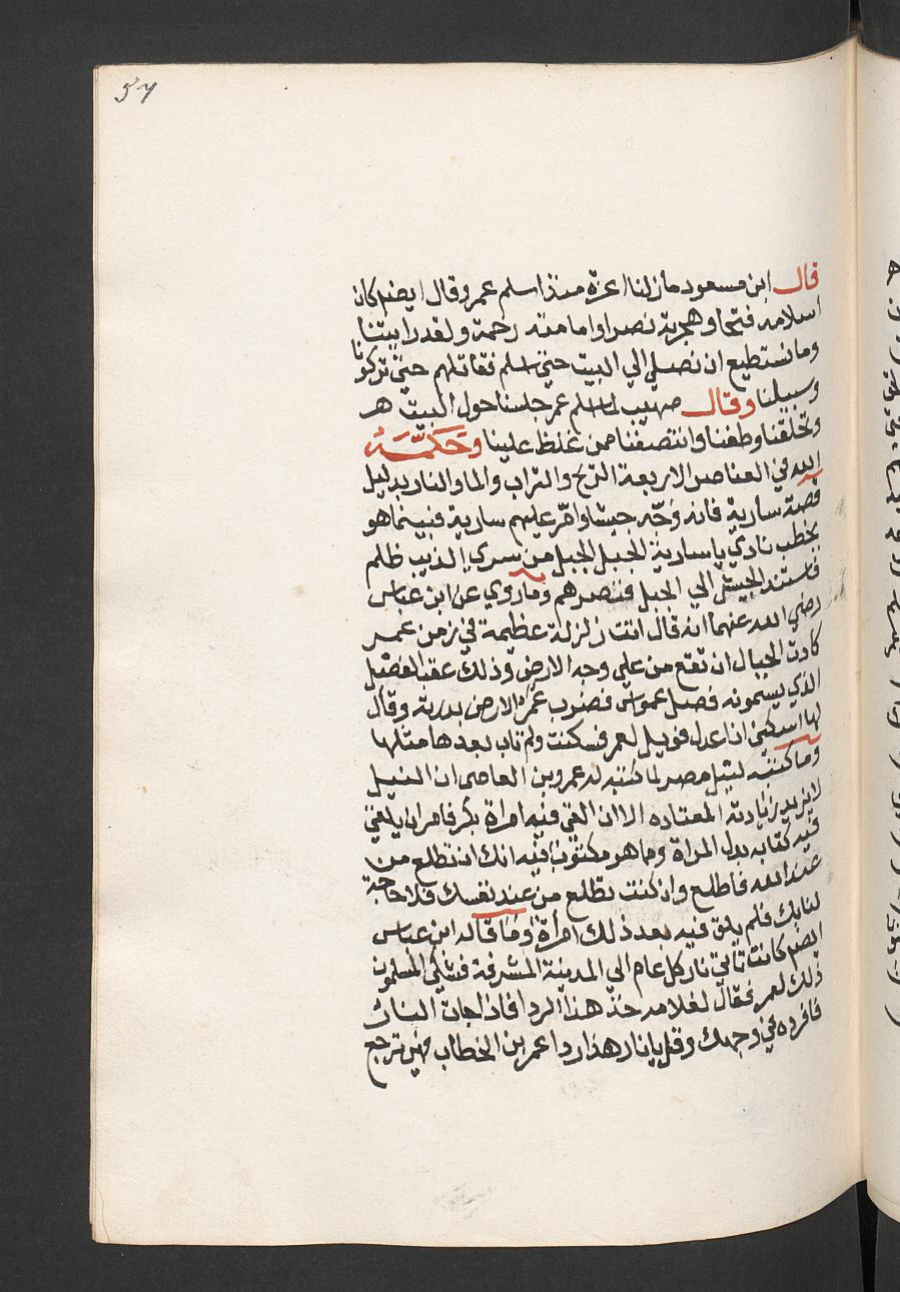 57
قال ابن مسعود مازلنا اعزة منذ اسلم عمر وقال ايضا كان
اسلامه فتحا وهجرته نصرا وامامته رحمة ولقد رايتنا
وما نستطيع ان نصلي الي البيت حتي اسلم فقاتلهم حتي تركونا
وسبيلنا وقال صهيب لما اسلم عمر جلسنا حول البيت
وتحلقنا وطفنا وانتصفنا ممن غلظ علينا وحكمه
الله في العناصر الاربعة الريح والتراب والما والنار بدليل
قصة سارية فانه وجه جيشا وامر عليهم سارية فبينما هو
يخطب نادي يا سارية الجبل الجبل من سرى الذيب ظلم
فاستند الجيش الي الجبل فنصرهم وما روي عن ابن عباس
رضي الله عنهما انه قال اتت زلزلة عظيمة في زمن عمر
كادت الجبال ان تقع من علي وجه الارض وذلك عقب الفصل
الذي يسمونه فصل عمواس فضرب عمر الارض بدرته وقال
لها اسكني انا عدل فويل لعمر فسكنت ولم تات بعدها مثلها
وما كتبه لنيل مصر لما كتب له عمرو بن العاصي ان النيل
لا يزيد زيادته المعتاده الا ان القي فيه امراة بكر فامر ان يلقي
فيه كتابه بدل المراة وما هو مكتوب فيه انك ان تطلع من
عند الله فاطلع وان كنت تطلع من عند نفسك فلا حاجة
لنا بك فلم يلق فيه بعد ذلك امراة وما قاله ابن عباس
ايضا كانت تاتي نار كل عام الي المدينة المشرفة فشكي المسلمون
ذلك لعمر فقال لغلامه خذ هذا الردا فاذا جات النار
فافرده في وجهك وقل يا نار هذا ردا عمر بن الخطاب فهي ترجع